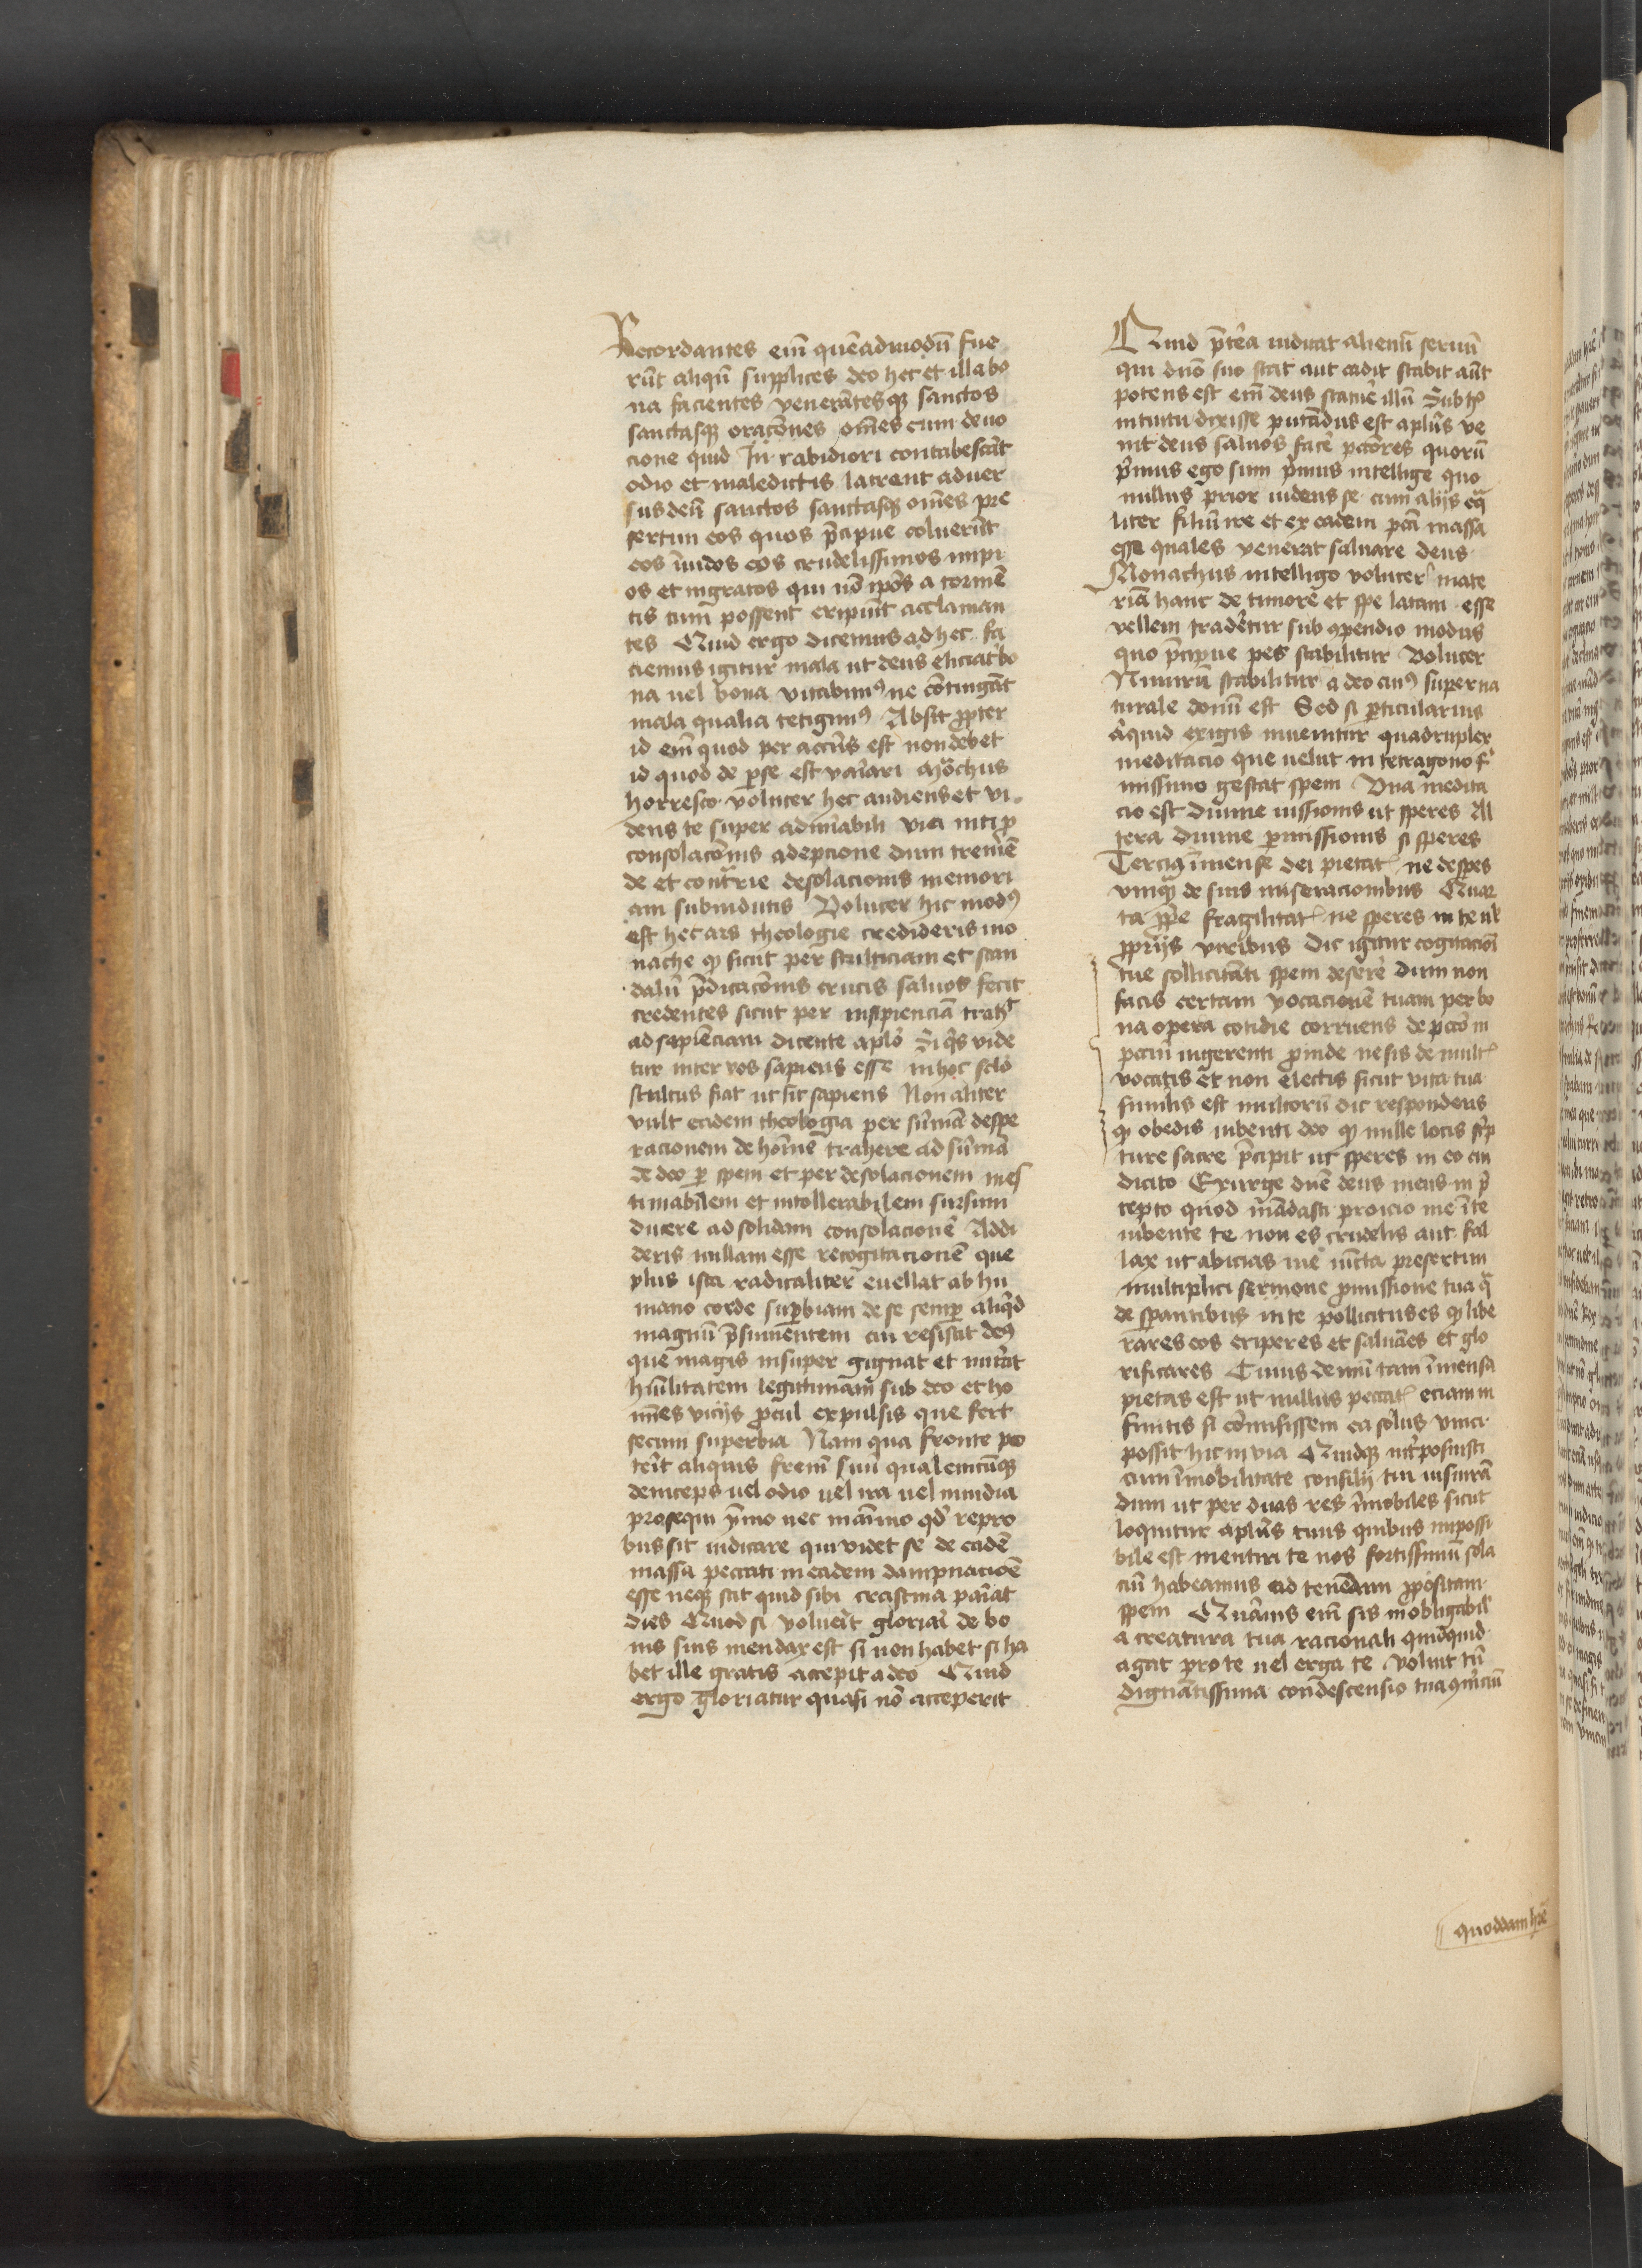 Recordantes em̄ quēadmodū fue
rūt aliqn̄ supplices deo hec et illa bo
na facientes venerātesqꝫ sanctos
sanctasqꝫ oraco̅nes om̄es cum deuo
cione quid In rabidiori contabescāt
odio et maledictis latrent aduer
sus deū sanctos sanctasqꝫ om̄es pre
sertim eos quos p̄cipue coluerūt
eos īuidos eos crudelissimos impi
os et ingratos qui nō ip̄os a tormē
tis cum possent eripiūt acclaman
tes Quid ergo dicemus ad hec fa
ciemus igitur mala ut deus eliciat bo
na uel bona vitabimꝰ ne cōtingāt
mala qualia tetigimꝰ Absit ꝓpter
id em̄ quod per accn̄s est non debet
id quod de ꝑ se est vari̅ari Mōchus
horresco volucer hec audiens et vi
dens te super admi̅abili via niti ꝓ
consolaco̅nis adepcione dum tremē
de et cont̅rie desolacionis memori
am subinducis Volucer hic modꝰ
est hec ars theologie credideris mo
nache qꝫ sicut per stulticiam et scan
dalū p̄dicaco̅nis crucis saluos fecit
credentes sicut per insipienciā trah̅t
ad sapiēciam dicente aplo̅ Si qͥs vide
tur inter vos sapiens esse in hoc sclo̅
stultus fiat ut sit sapiens Non aliter
vult eadem theologia per sūmā despe
racionem de ho̅īne trahere ad sūmā
de deo ꝑ spem et per desolacionem ines
timabilem et intollerabilem sursum
ducere ad solidam consolacionē Addi
deris nullam esse recogitacionē que
plus ista radicaliter euellat ab hu
mano corde suꝑbiam de se semꝑ aliqͥd
magnū p̄sumentem cui resistit deꝰ
que magis insuper gignat et nut̅at
hūilitatem legittimam sub deo et ho
mn̅es vicijs ꝓcul expulsis que fert
secum superbia Nam qua fronte po
te̅it aliquis frem̄ suū qualemcūqꝫ
deinceps uel odio uel ira uel inuidia
prosequi ymo nec in aīmo qd̄ repro
bus sit iudicare qui videt se de eadē
massa peccati in eadem dampnacioē
esse neqꝫ scit quid sibi crastina pari̅at
dies Quod si volue̅it gloria̅i de bo
nis suis mendax est si non habet si ha
bet ille gratis accepit a deo Quid
ergo gloriatur quasi nō acceperit
Quid p̄te̅a iudicat alienū seruū
qui dn̅o suo stat aut cadit stabit aūt
potens est em̄ deus statue̅ illū Sub hͦ
intuitu dixisse putādus est apl̅us ve
nit deus saluos face̅ pcto̅res quorū
p̄mus ego sum p̄mus intellige quo
nullus prior uidens se cum alijs eqͣ
liter filiū ire et ex eadem pcti̅ massa
esse quales venerat saluare deus
Monachus intelligo volucer mate
riā hanc de timore et spe latam esse
vellem trade̅tur sub ꝯpendio modus
quo p̄cipue spes stabilitur Volucer
Nimirū stabilitur a deo cuiꝰ superna
turale donū est Sed si ꝑticularius
aͥquid exigis inuenitur quadruplex
meditacio que uelut in tetragono fͥ
missimo gestat spem Una medita
cio est diuine iussionis ut speres Al
tera diuine ꝓmissionis si speres
Tercia īmense dei pietatꝭ ne despes
vmqͣ de suis miseracionibus Quar
ta ꝓpͥe fragilitatꝭ ne speres in te ul̅
ꝓprijs viribus Dic igitur cogitacio̅i
tue sollicitāti spem dese̅re dum non
facis certam vocacionē tuam per bo
na opera cotidie corruens de pcto̅ in
pctm̅ ingerenti ꝓinde ne sis de multꝭ
vocatis et non electis sicut vita tua
similis est multorū dic respondens
qꝫ obedis iubenti deo qꝫ mille locis sc̅ͥp
ture sacre p̄cipit ut speres in eo cui
dicito Exurge dn̄e deus meus in p̄
cepto quod mādasti proicio me ī te
iubente te non es crudelis aut fal
lax ut abicias me iūcta presertim
multiplici sermone ꝓmissione tua qͣ
de sꝑantibus in te pollicitus es qꝫ libe
rares eos eriperes et saluāes et glo
rificares Cuius demū tam īmensa
pietas est ut nullus peccatꝭ eciam in
finitis si co̅misissem ea solus vinci
possit hic in via Quidqꝫ int̅posuisti
cum īmobilitate consilij tui iusiurā
dum ut per duas res īmobiles sicut
loquitur apl̅us tuus quibus impossi
bile est mentiri te nos fortissimū sola
ciū habeamus ad tenēdam ꝓpositam
spem Quāuis em̄ sis inobligabil̅
a creatura tua racionali quidquid
agat pro te uel erga te Voluit tn̄
dignātissima condescensio tua ꝯmͥciū
quoddam hr̄e